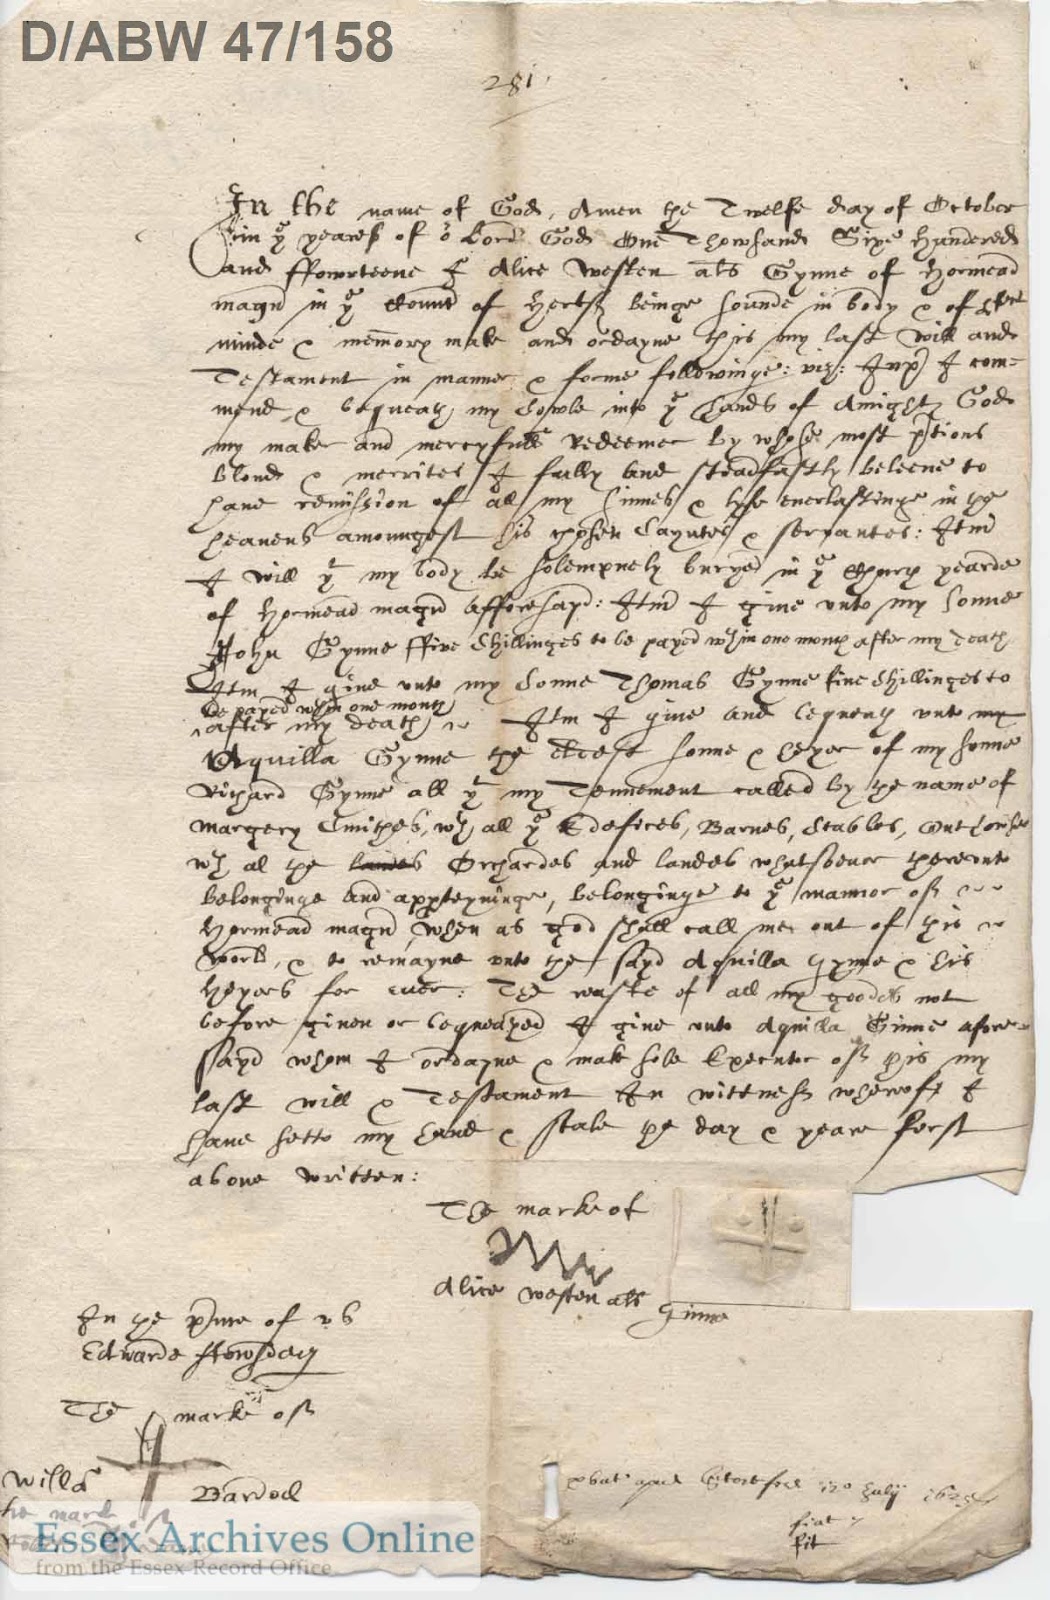 D/ABW 47/158
281
In the name of God, Amen the Twelfe day of October
in ye yeares of or Lord God One Thowsand Sixe Hundered
and ffowrteene I Alice Westen als Gynne of Hormead
magn in ye Count of Hertf beinge sounde in body & of
minde & memory make and ordayne this my last will and
Testament in manner & forme followinge: viz: Inp I com=
mend & bequeath my Sowle into ye hands of Amighty God
my maker and mercyfull redeemer by whose most ptious
bloud & merrites I fully and steadfastly beleeve to
have remission of all my sinnes & lyfe everlastinge in the
heavens amoungest his chosen Sayntes & servantes: Itm
I will yt my body be solempnely buryed in ye Church yearde
of Hormead magn afforesayd: Itm I give unto my Sonne
John Gynne ffive Shillinges to be payed wthin one month after my death
Itm I give unto my Sonne Thomas Gynne five Shillinges to
be payed wthin one month
after my death Itm I give and bequeath unto my
Aquilla Gynne the eldest sonne & heyer of my sonne
Richard Gynne all yt my Tennement called by the name of
Margery Smithes, wth all ye Edefices, Barnes, Stables, Outhowses
wth al the landes Orchardes and landes whatsoever thereunto
belonginge and apperteyninge, belonginge to ye mannor of
Hormead magn, when as god shall call me out of this
World, & to remayne unto the sayd Aquilla Gynne & his
heyers for ever: The reaste of all my goodes not
before given or bequeathed I give unto Aquilla Ginne afore=
sayd whom I ordayne & make sole Executor of this my
last will & Testament In wittness whereoff I
have sette my hand & seale the day & yeare ferst
above written:
The marke of
Alice Westen als Ginne
In the psence of us
Edwarde
The marke of
Willm Bardoll
the marke
pbat apud Stortford Julij
fiat
fit
Essex Archives Online
from the Essex Record Office